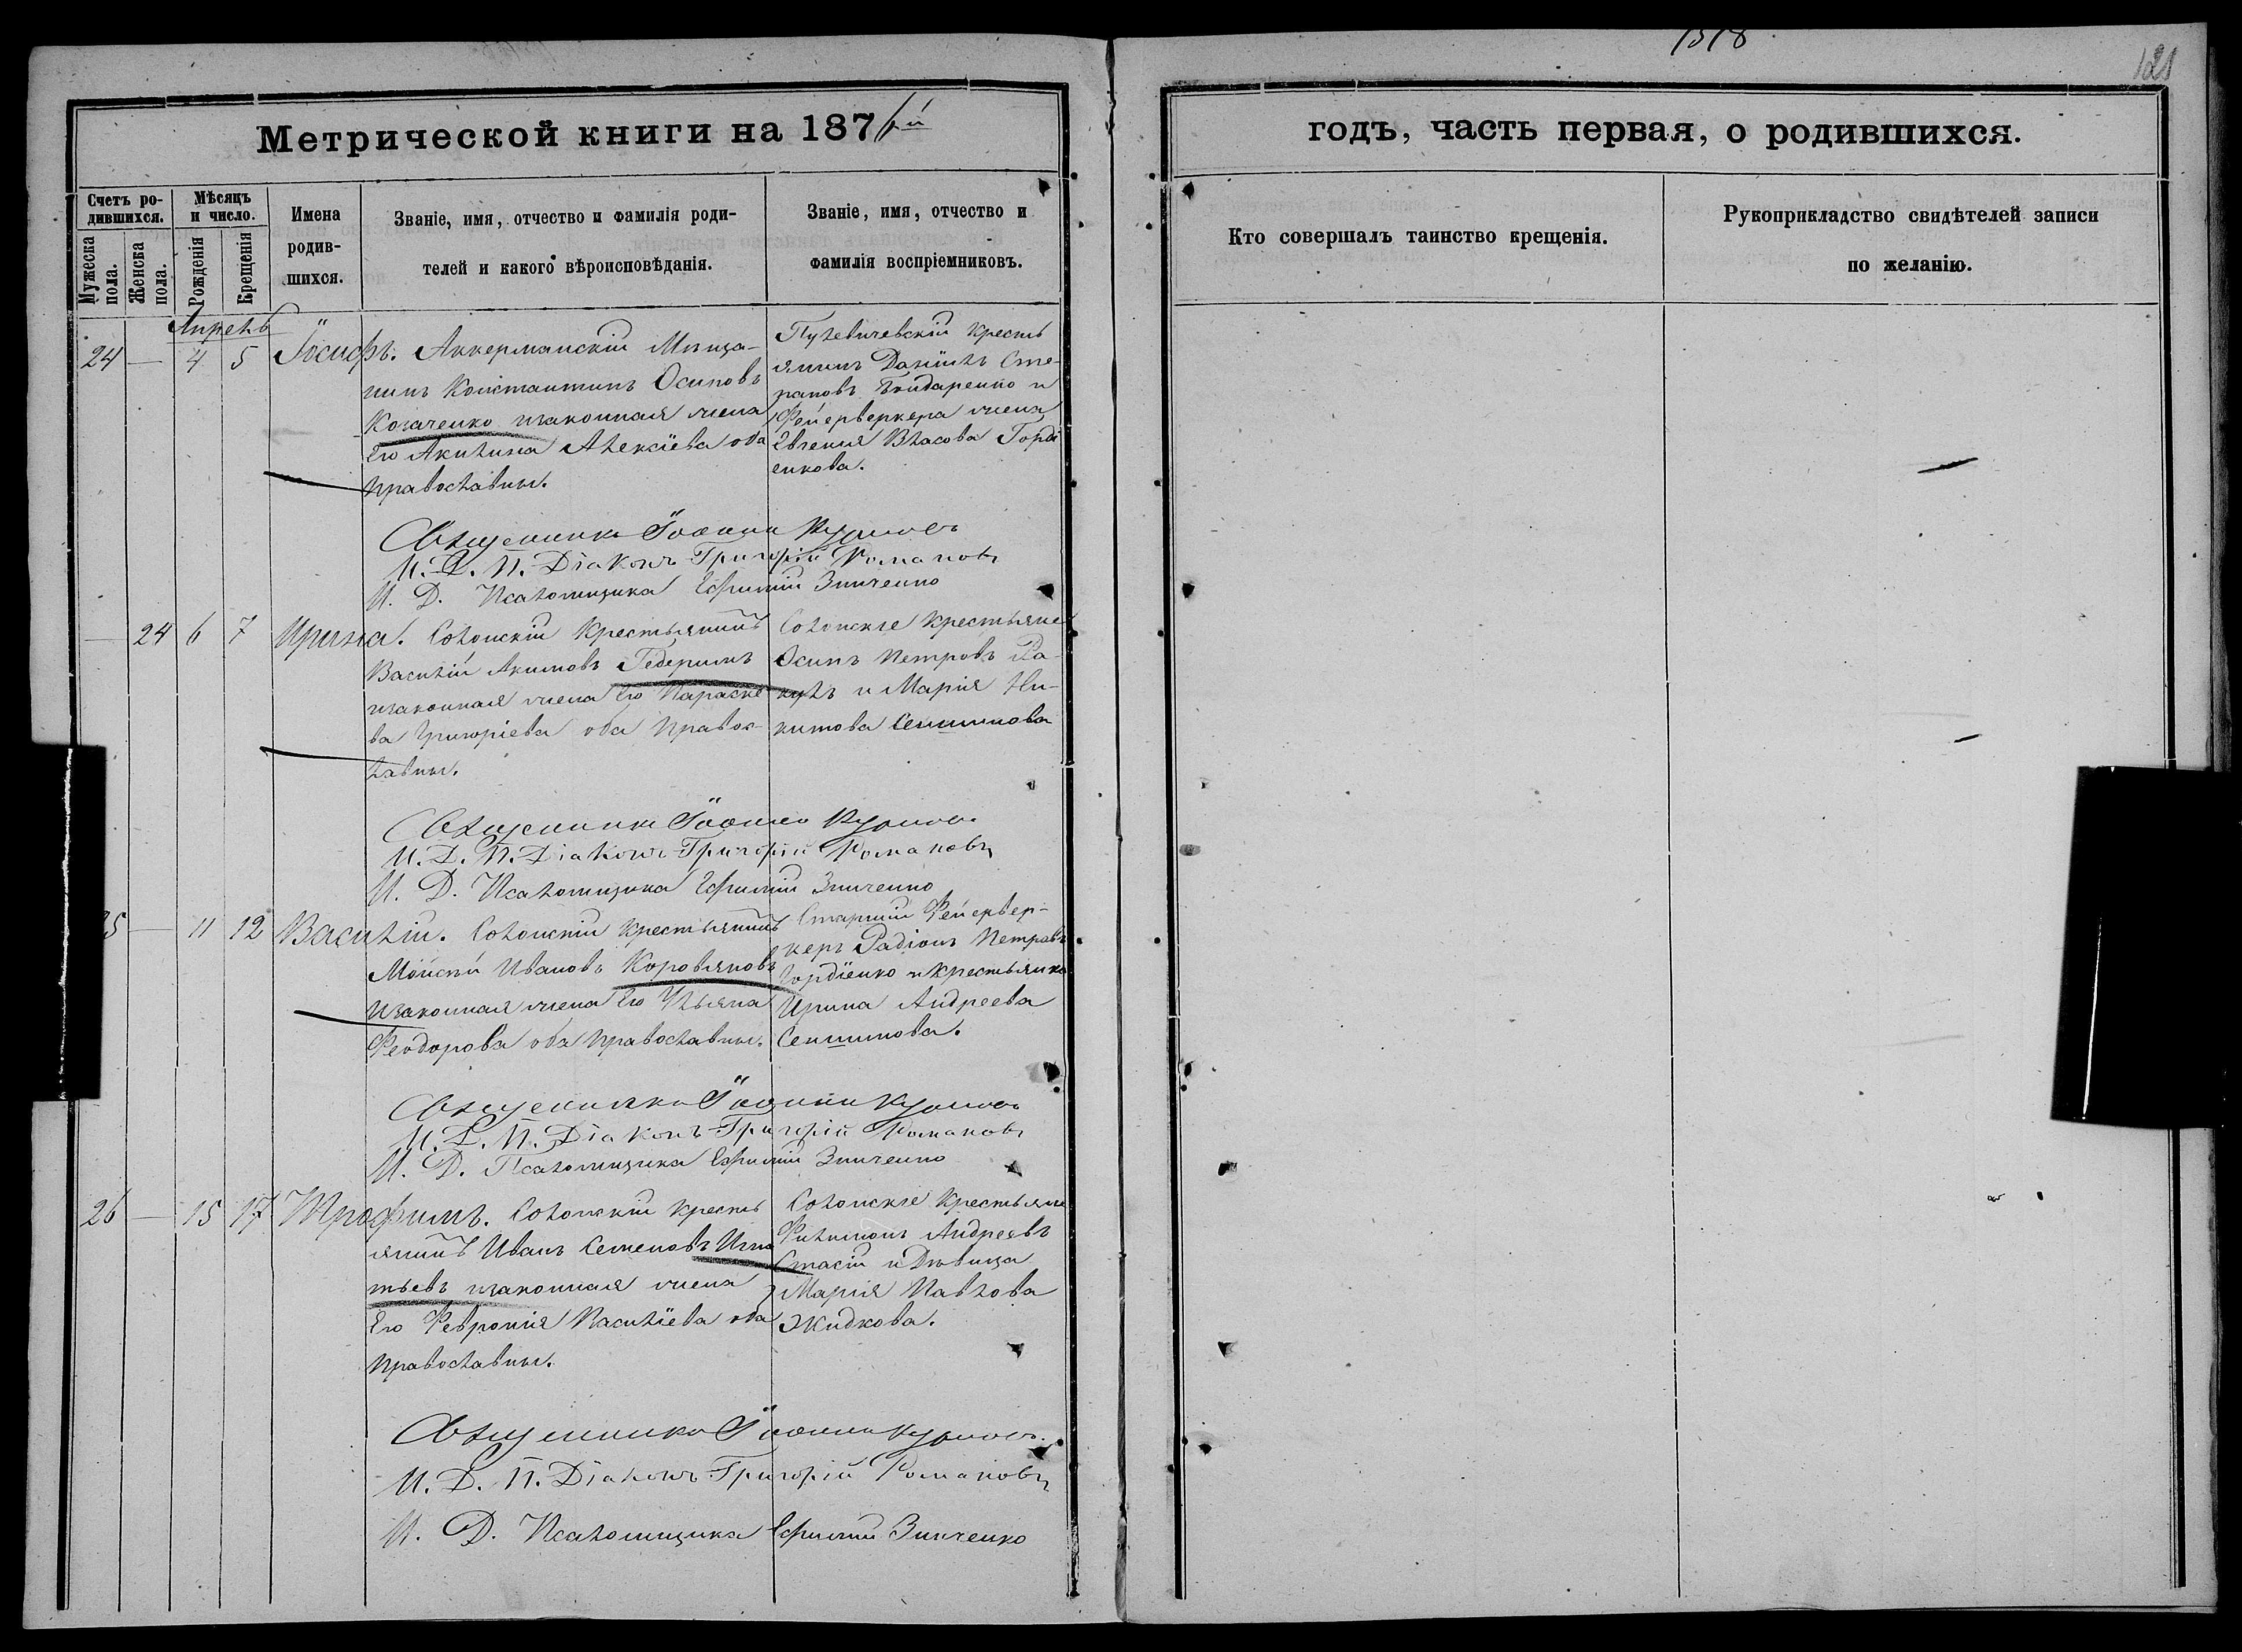 1518
121
Метрической книги на 1876й
годъ, часть первая, о родившихся.
Счетъ ро-
дившихся.
Мужеска
пола.
Женска
пола.
Мѣсяцъ
и число.
Рожденія
Крещенія
Имена
родив-
шихся.
Званіе, имя, отчество и фамилія роди-
телей и какого вѣроисповѣданія.
Званіе, имя, отчество и
фамилія воспріемниковъ.
Кто совершалъ таинство крещенія.
Рукоприкладство свидѣтелей записи
по желанію.
Апрель
24 — 4 5 Іосифъ.
Аккерманскій Мѣща-
нинъ Константинъ Осиповъ
Козаченко изаконная жена
Его Акилина Алексіева оба
православны.
крестъ
янинъ Даніилъ Сте-
пановъ Бондаренко и
Фейерверкера жена
Евгенія Власова Горді
енкова.
Священникъ Іоаннъ
И. Д. П. Діаконъ Григорій Романовъ
И. Д. Псаломщика Ефимій Зинченко
— 24 6 7 Ирина.
Солонскій крестьянинъ
Василій Акимовъ Гедеримъ
изаконная жена Его Параске
ва Григоріева оба правос-
лавны.
Солонскіе крестьяне
Осипъ Петровъ Ра-
кулъ и Марія Ни-
китова Сенишнова
Священникъ Іоаннъ
И. Д. П. Діаконъ Григорій Романовъ
И. Д. Псаломщика Ефимій Зинченко
25 — 11 12 Василій.
Солонскій крестьянинъ
Мойсѣй Ивановъ Коровяновъ
изаконная жена Его Ульяна
Феодорова оба православны.
Старшій Фейервер-
керъ Радіонъ Петровъ
Гордіенко и крестьянка
Ирина Андреева
Сенишнова.
Священникъ Іоаннъ
И. Д. П. Діаконъ Григорій Романовъ
И. Д. Псаломщика Ефимій Зинченко
26 — 15 17 Трофимъ.
Солонскій кресть
янинъ Иванъ Семеновъ Игна
тьевъ изаконная жена
Его Февронія Василіева оба
православны.
Солонскіе крестьяне
Филимонъ Андреевъ
Стасій и Дѣвица
Марія Павлова
Жидкова.
Священникъ Іоаннъ
И. Д. П. Діаконъ Григорій Романовъ
И. Д. Псаломщика Ефимій Зинченко